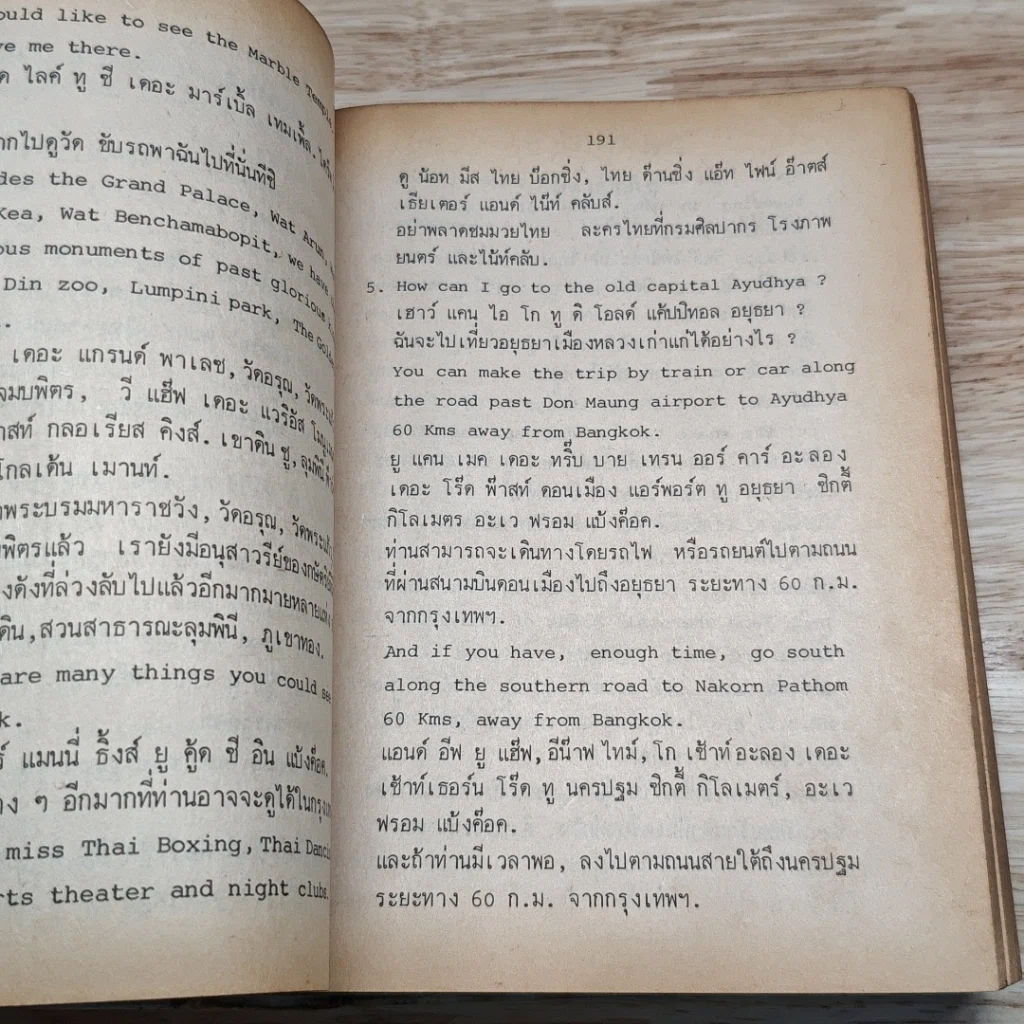 ould like to see the Marble Temple
ve me there.
ด ไลค์ ทู ซี เดอะ มาร์เบิ้ล เทมเพิ้ล.
ากไปดูวัด ขับรถพาฉันไปที่นั่นทีซิ
des the Grand Palace, Wat Arun,
Kea, Wat Benchamabopit, we have
ous monuments of past glorious
Din zoo, Lumpini park, The
.
เดอะ แกรนด์ พาเลซ, วัดอรุณ,
จมบพิตร, วี แฮ็ฟ เดอะ แวริอัส
าสท์ กลอเรียส คิงส์. เขาดิน ซู,
โกลเด้น เมานท์.
พระบรมมหาราชวัง, วัดอรุณ,
พิตรแล้ว เรายังมีอนุสาวรีย์ของกษัตริย์
งดังที่ล่วงลับไปแล้วอีกมากมายหลายแห่ง
ดิน,สวนสาธารณะลุมพินี, ภูเขาทอง.
are many things you could see
k.
ร์ แมนนี่ ธิ้งส์ ยู คู้ด ซี อิน แบ้งค็อค.
าง ๆ อีกมากที่ท่านอาจจะดูได้ในกรุงเทพ
miss Thai Boxing, Thai Dancing
rts theater and night clubs.
191
ดู น้อท มีส ไทย บ๊อกซิ่ง, ไทย ด๊านซิ่ง แอ๊ท ไฟน์ อ๊าตส์
เธียเตอร์ แอนด์ ไน๊ท์ คลับส์.
อย่าพลาดชมมวยไทย ละครไทยที่กรมศิลปากร โรงภาพ
ยนตร์ และไน้ท์คลับ.
5. How can I go to the old capital Ayudhya ?
เฮาว์ แคน ไอ โก ทู ดิ โอลด์ แค๊ปปิทอล อยุธยา ?
ฉันจะไปเที่ยวอยุธยาเมืองหลวงเก่าแก่ได้อย่างไร ?
You can make the trip by train or car along
the road past Don Maung airport to Ayudhya
60 Kms away from Bangkok.
ยู แคน เมค เดอะ ทริ๊บ บาย เทรน ออร์ คาร์ อะลอง
เดอะ โร๊ด พ๊าสท์ ดอนเมือง แอร์พอร์ต ทู อยุธยา ซิกตี๊
กิโลเมตร อะเว ฟรอม แบ้งค๊อค.
ท่านสามารถจะเดินทางโดยรถไฟ หรือรถยนต์ไปตามถนน
ที่ผ่านสนามบินดอนเมืองไปถึงอยุธยา ระยะทาง 60 ก.ม.
จากกรุงเทพฯ.
And if you have, enough time, go south
along the southern road to Nakorn Pathom
60 Kms, away from Bangkok.
แอนด์ อีฟ ยู แฮ๊ฟ,อีน๊าฟ ไทม์, โก เซ้าท์ อะลอง เดอะ
เซ้าท์เธอร์น โร๊ด ทู นครปฐม ซิกตี๊ กิโลเมตร์, อะเว
ฟรอม แบ้งค๊อค.
และถ้าท่านมีเวลาพอ, ลงไปตามถนนสายใต้ถึงนครปฐม
ระยะทาง 60 ก.ม. จากกรุงเทพฯ.